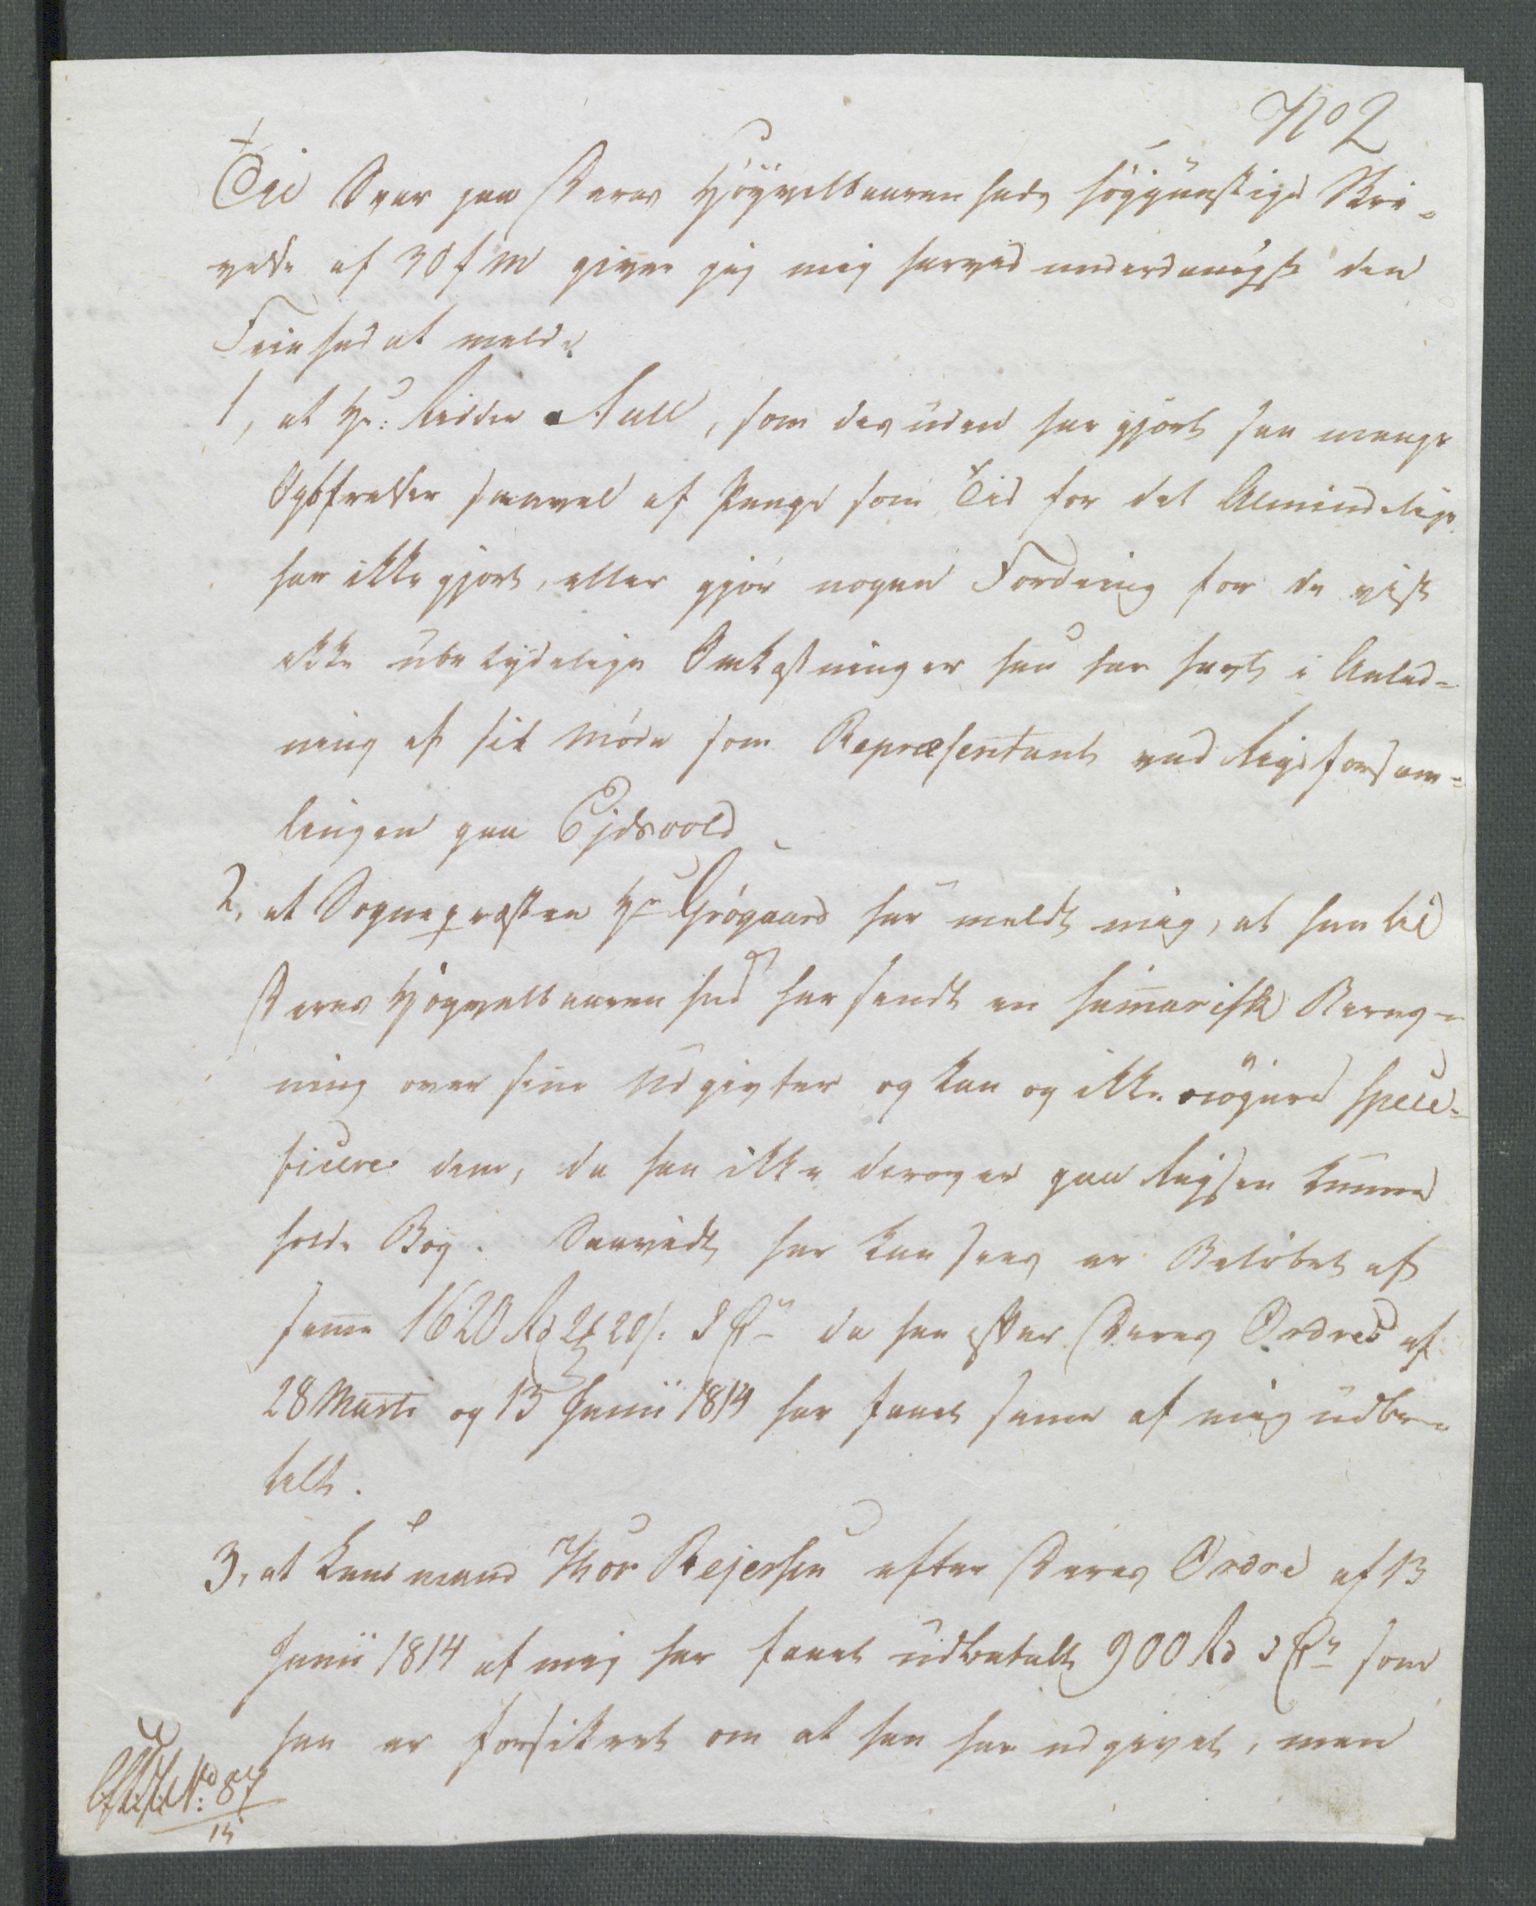 No 2
Til Svar paa Deres Höyvelbaarenheds höygunstige Skri-
velse af 30 f M giver jeg mig herved underdanigst den
Friehed at melde
1, at Hr: Ridder Aall, som desuden har gjort saa mange
Opofrelser saavel af Penge som Tid for det Almindelige
har ikke gjort, eller gjør nogen Fordring for de vist
ikke ubetydelige Omkostninger han har havt i Anled-
ning af sit Møde som Repræsentant ved Rigsforsam-
lingen paa Ejdsvold
2, at Sognepræsten Hr Grøgaard har meldt mig, at han til
Deres Høyvelbaarenhed har sendt en sumarisk Bereg-
ning over sine Udgivter og kan og ikke nöyere speci-
ficere dem, da han ikke derover paa Rejsen kunne
holde Bog. Saavidt her kan sees er Beløbet af
samme 1620 Rd 2 20 s. da han efter Deres Ordres af
28 Marti og 13 Junii 1814 har faaet samme af mig udbe-
talt.
3, at Kaufmand Thor Rejersen efter Deres Ordre af 13
Junii 1814 af mig har faaet udbetalt 900 Rd som
han er forsikret om at han har udgivet, men
No: 87
15